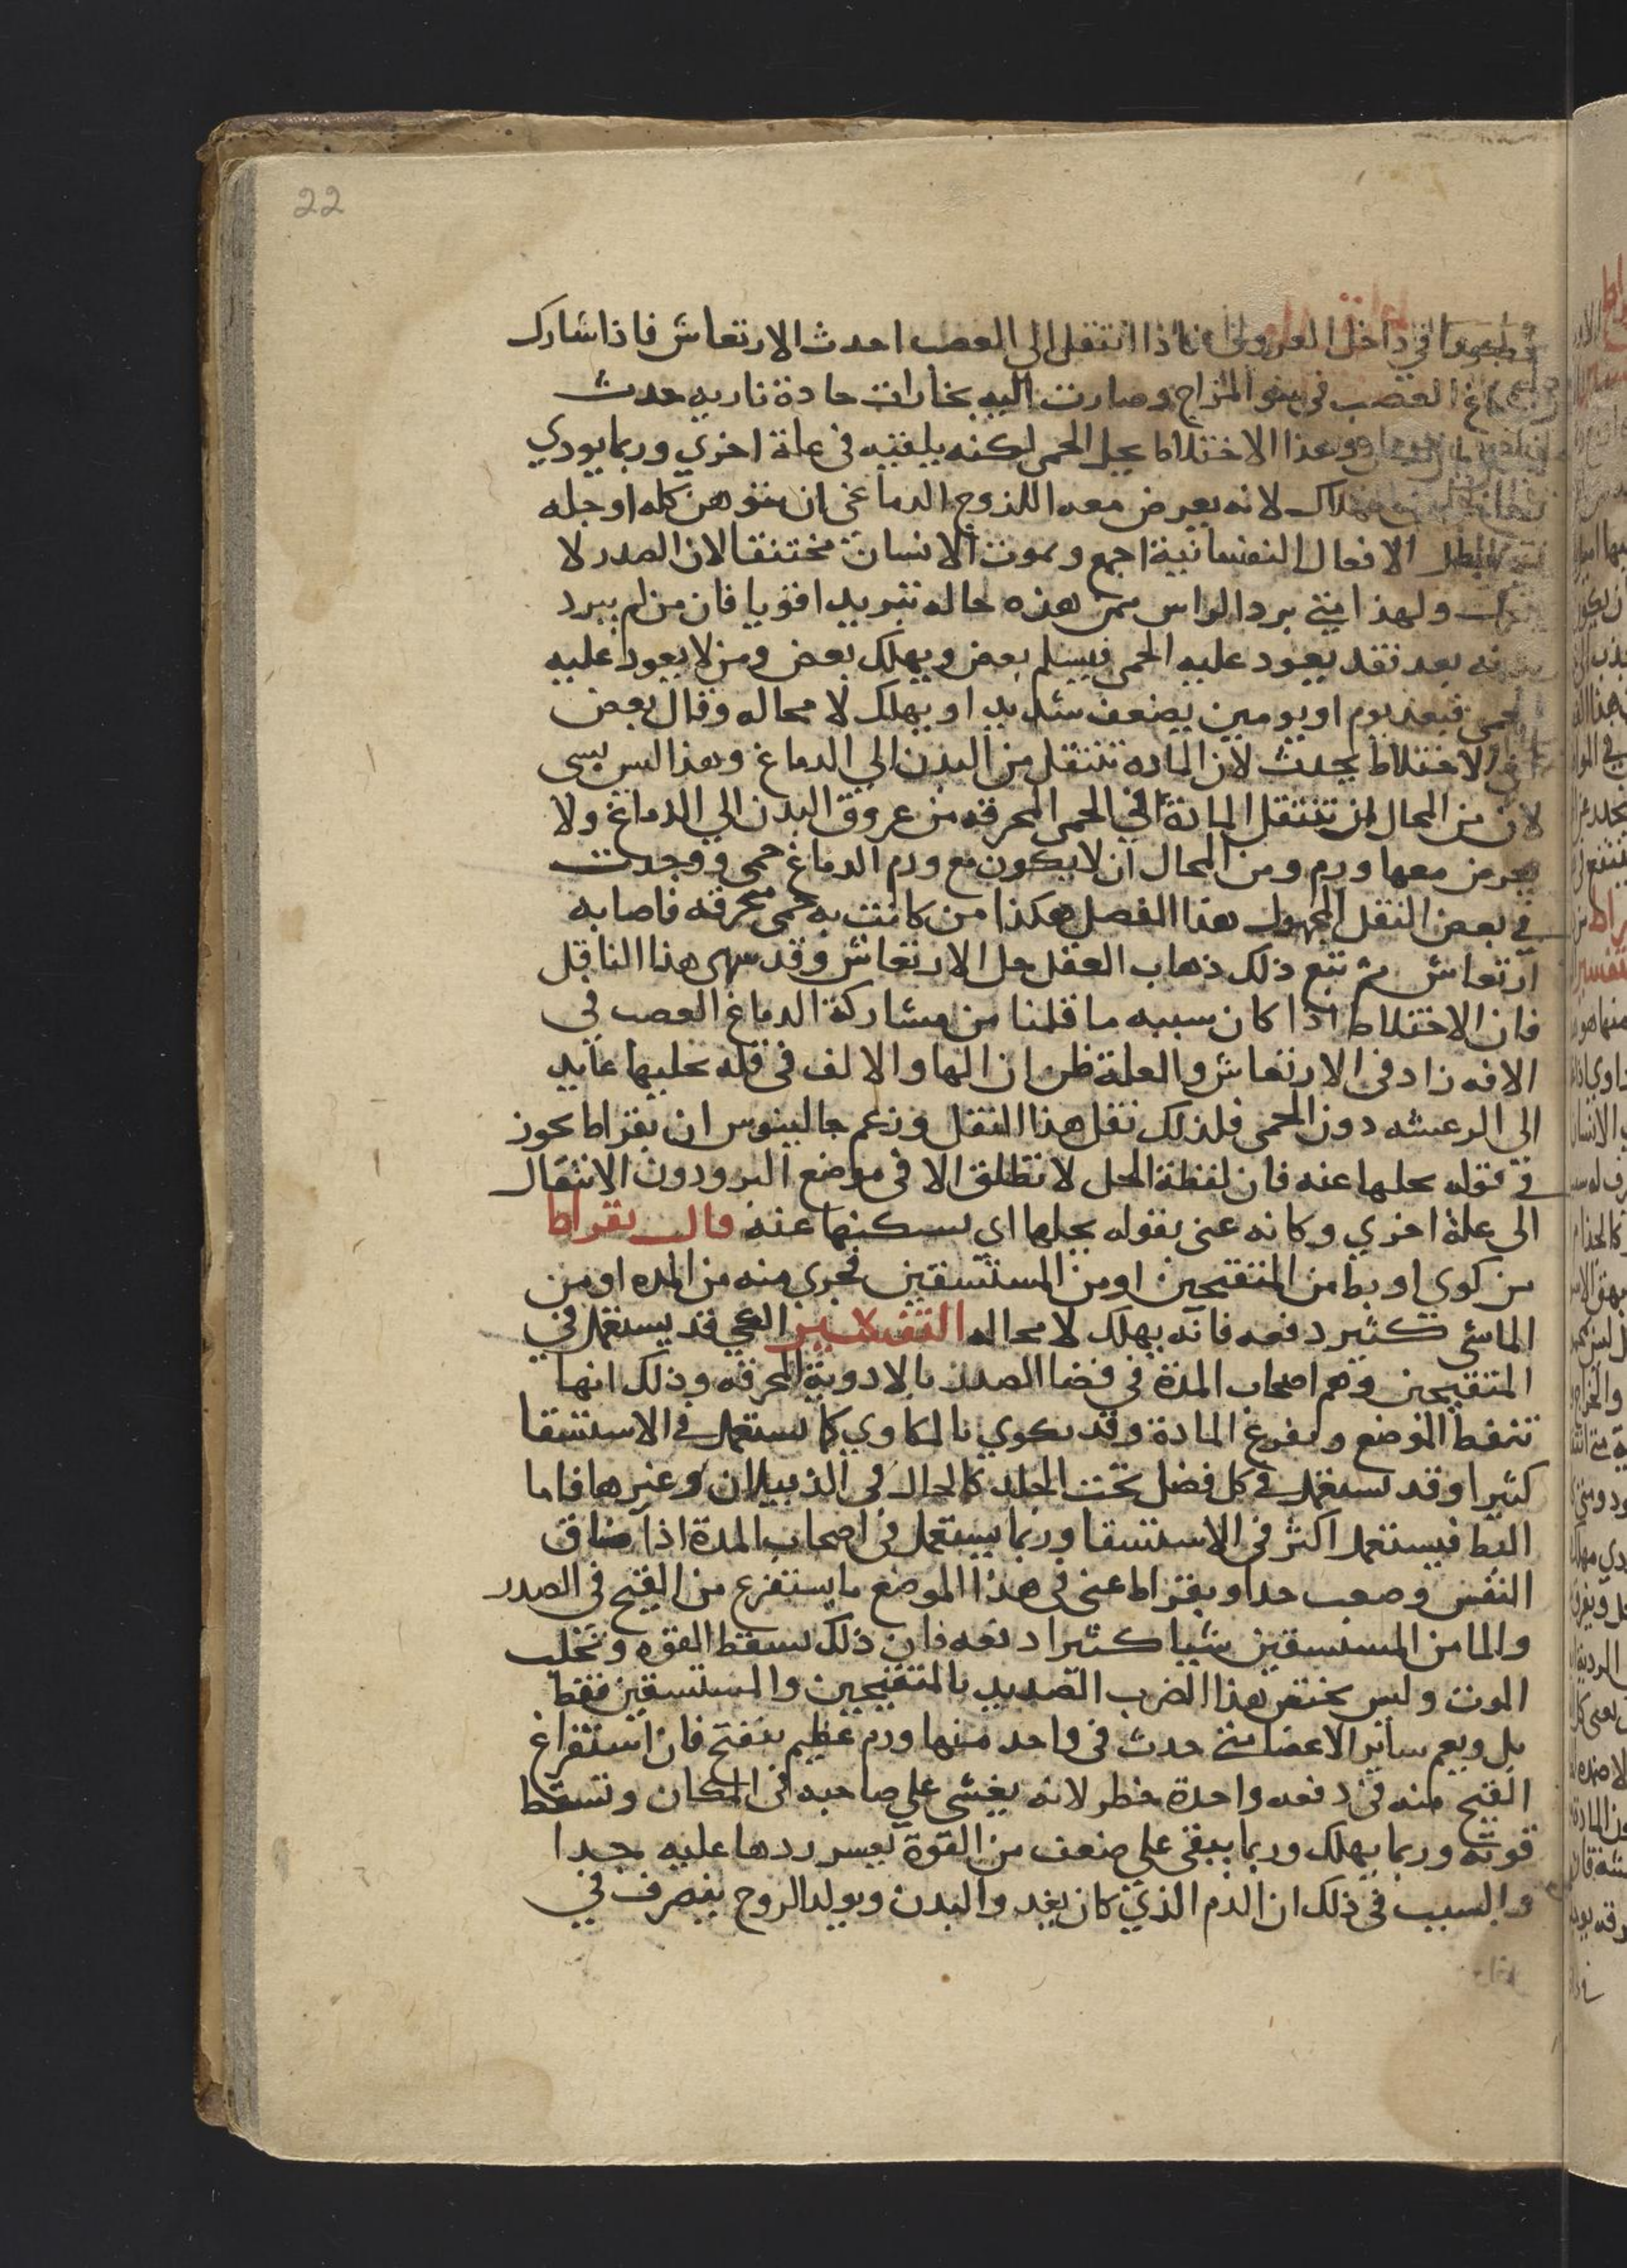 22
في داخل العروق فاذا انتقل الى العصب احدث الارتعاش فاذا شارك
العصب في سو المزاج وصارت اليه بخارات حادة ناريه حدث
وهذا الاختلاط يحل الحمى لكنه يلقيه في علة اخري وربما يودي
لانه يعرض معه اللذوج الدماغي ان هو هن كله او جله
الافعال النفسانية اجمع ويموت الانسان مختنقا لان الصدر لا
ولهذا متي برد الراس ممن هذه حاله تبريدا قويا فان من لم يبرد
بعد فقد يعود عليه الحمى فيسلم بعض ويهلك بعض ومن لا يعود عليه
فبعد يوم او يومين يضعف شديد او يهلك لا محاله وقال بعض
الاختلاط يحدث لان الماده تنتقل من البدن الي الدماغ وهذا ليس بسى
لان من المحال ان تنتقل المادة الي الحمى المحرقه من عروق البدن الي الدماغ ولا
يعرض معها ورم ومن المحال ان لا يكون مع ورم الدماغ حمى ووجدت
في بعض النقل المجهول هذا الفصل هكذا من كانت به حمى محرقه فاصابه
ارتعاش ثم تبع ذلك ذهاب العقل حل الارتعاش وقد سهى هذا الناقل
فان الاختلاط اذا كان سببه ما قلنا من مشاركة الدماغ العصب في
الافه زاد في الارتعاش والعلة ظن ان الها والالف في قله يحليها عايد
الى الرعشه دون الحمى فلذلك نقل هذا النقل وزعم جالينوس ان بقراط يجوز
في قوله يحلها عنه فان لفظة الحل لا تطلق الا في موضع البرو دون الانتقال
الى علة اخري وكانه عنى بقوله يحلها اى يسكنها عنه قال بقراط
من كوي او بط من المتقيحين او من المستسقين فجرى منه من المده او من
الماشى كثير دفعه فانه يهلك لا محاله التفسير الكي قد يستعمل في
المتقيحين وهم اصحاب المدة في فضا الصدر بالادوية المحرقه وذلك انها
تنفط الموضع ويفرغ المادة وقد يكوي بالمكاوي كما يستعمل في الاستسقا
كثيرا وقد يستعمل في كل فضل تحت الجلد كالحال في الذبيلان وغيرها فاما
البط فيستعمل اكثر في الاستسقا وربما يستعمل في اصحاب المدة اذا ضاق
النفس وصعب جدا وبقراط عنى في هذا الموضع ما يستفرغ من القيح في الصدر
والما من المستسقين شيا كثيرا دفعه فان ذلك يسقط القوه ويجلب
الموت وليس يختص هذا الضرب الصديد بالمتقيحين والمستسقين فقط
بل ويعم ساير الاعضا متى حدث في واحد منها ورم عظيم يتفتح فان استفراغ
القيح منه في دفعه واحدة خطر لانه يغشى علي صاحبه في المكان وتسقط
قوته وربما يهلك وربما يبقى علي ضعف من القوة يعسر ردها عليه جدا
والسبب في ذلك ان الدم الذي كان يغدو البدن ويولد الروح ينصرف في